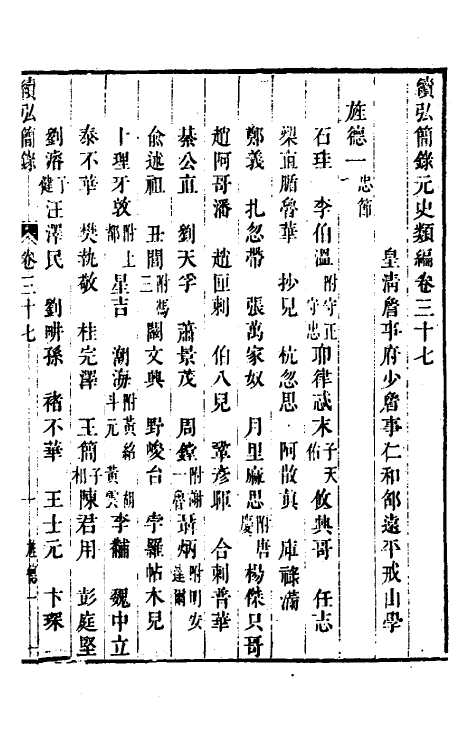 續弘簡錄元史類編卷三十七
皇淸詹事府少詹事仁和邵遠平戒山學
旌德一忠節
石珪　李伯溫附守正守忠　耶律忒末子天佑　攸興哥　任志
梁直腯魯華　抄兒　杭忽思　阿散眞　庫祿滿
鄭義　扎忽帶　張萬家奴　月里麻思附唐慶　楊傑只哥
趙阿哥潘　趙匣剌　伯八兒　鞏彥暉　合剌普華
綦公直　劉天孚　蕭景茂　周鏜附謝一魯　聶炳附明安達爾
俞述祖　丑閭附馮三　闞文興　野峻台　孛羅帖木兒
卜理牙敦附上都　星吉　潮海附黃紹胡斗元黃雲　李黼　魏中立
泰不華　樊執敬　桂完澤　王簡子相　陳君用　彭庭堅
劉濬子健　汪澤民　劉畊孫　褚不華　王士元　卞琛
續弘簡錄　卷三十七　一　旌德一